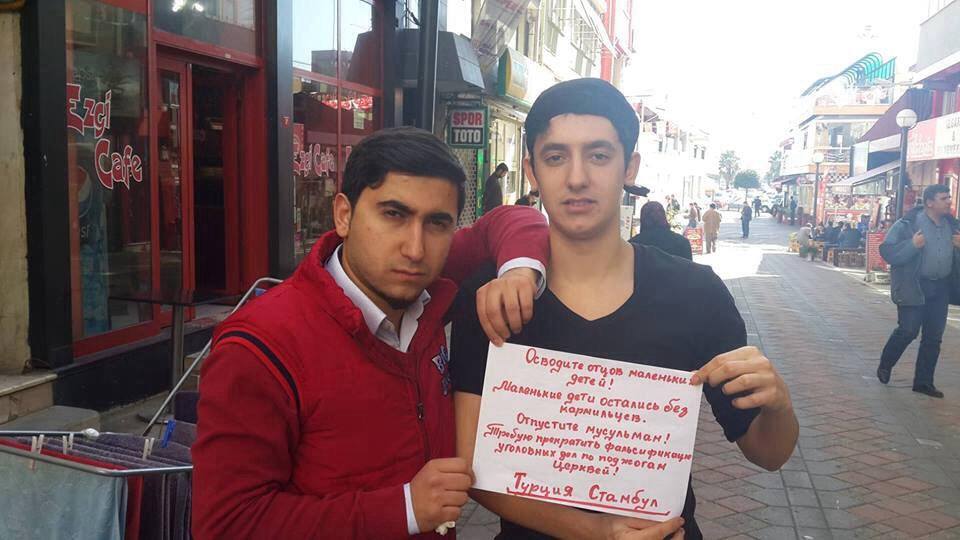 Ezgi
Cafe
SPOR
TOTO
Ezgi Cafe
Осводите отцов маленьких
детей!
Маленькие дети остались без
кормильцев.
Отпустите мусульман!
Требую прекратить фальсификацию
уголовных дел по поджогам
Церквей!
Турция Стамбул